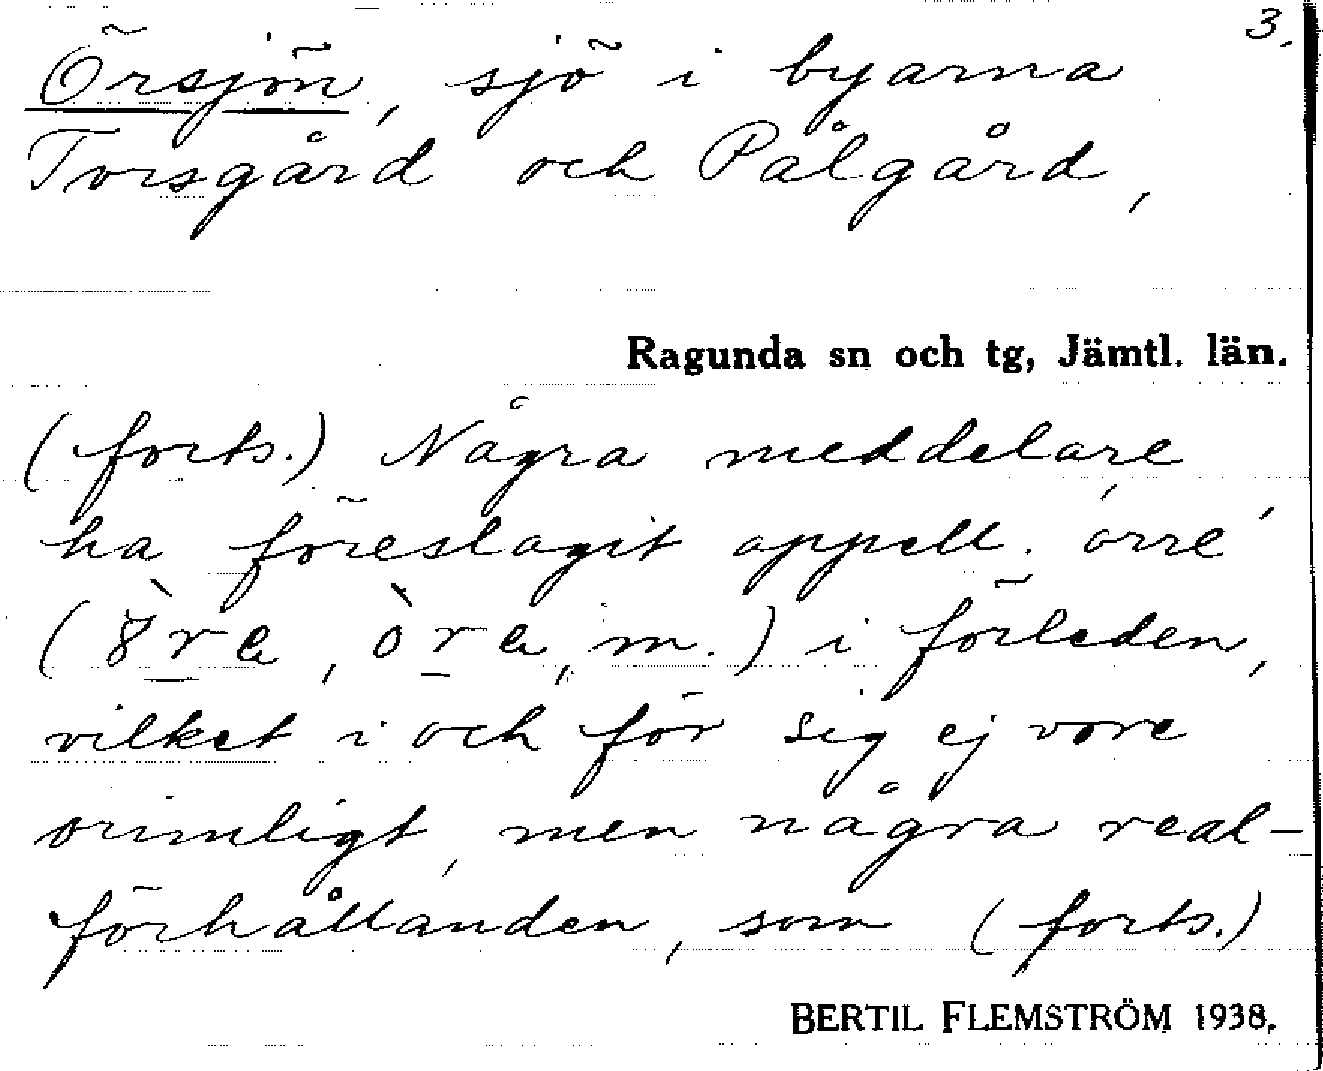 3.
Örsjön, sjö i byarna
Torsgård och Pålgård,
Ragunda sn och tg, Jämtl. län.
(forts.) Några meddelare
ha föreslagit appell. 'orre'
(8̀ra, òra, m.) i förleden,
vilket i och för sig ej vore
orimligt, men några real-
förhållanden, som (forts.)
BERTIL FLEMSTRÖM 1938.